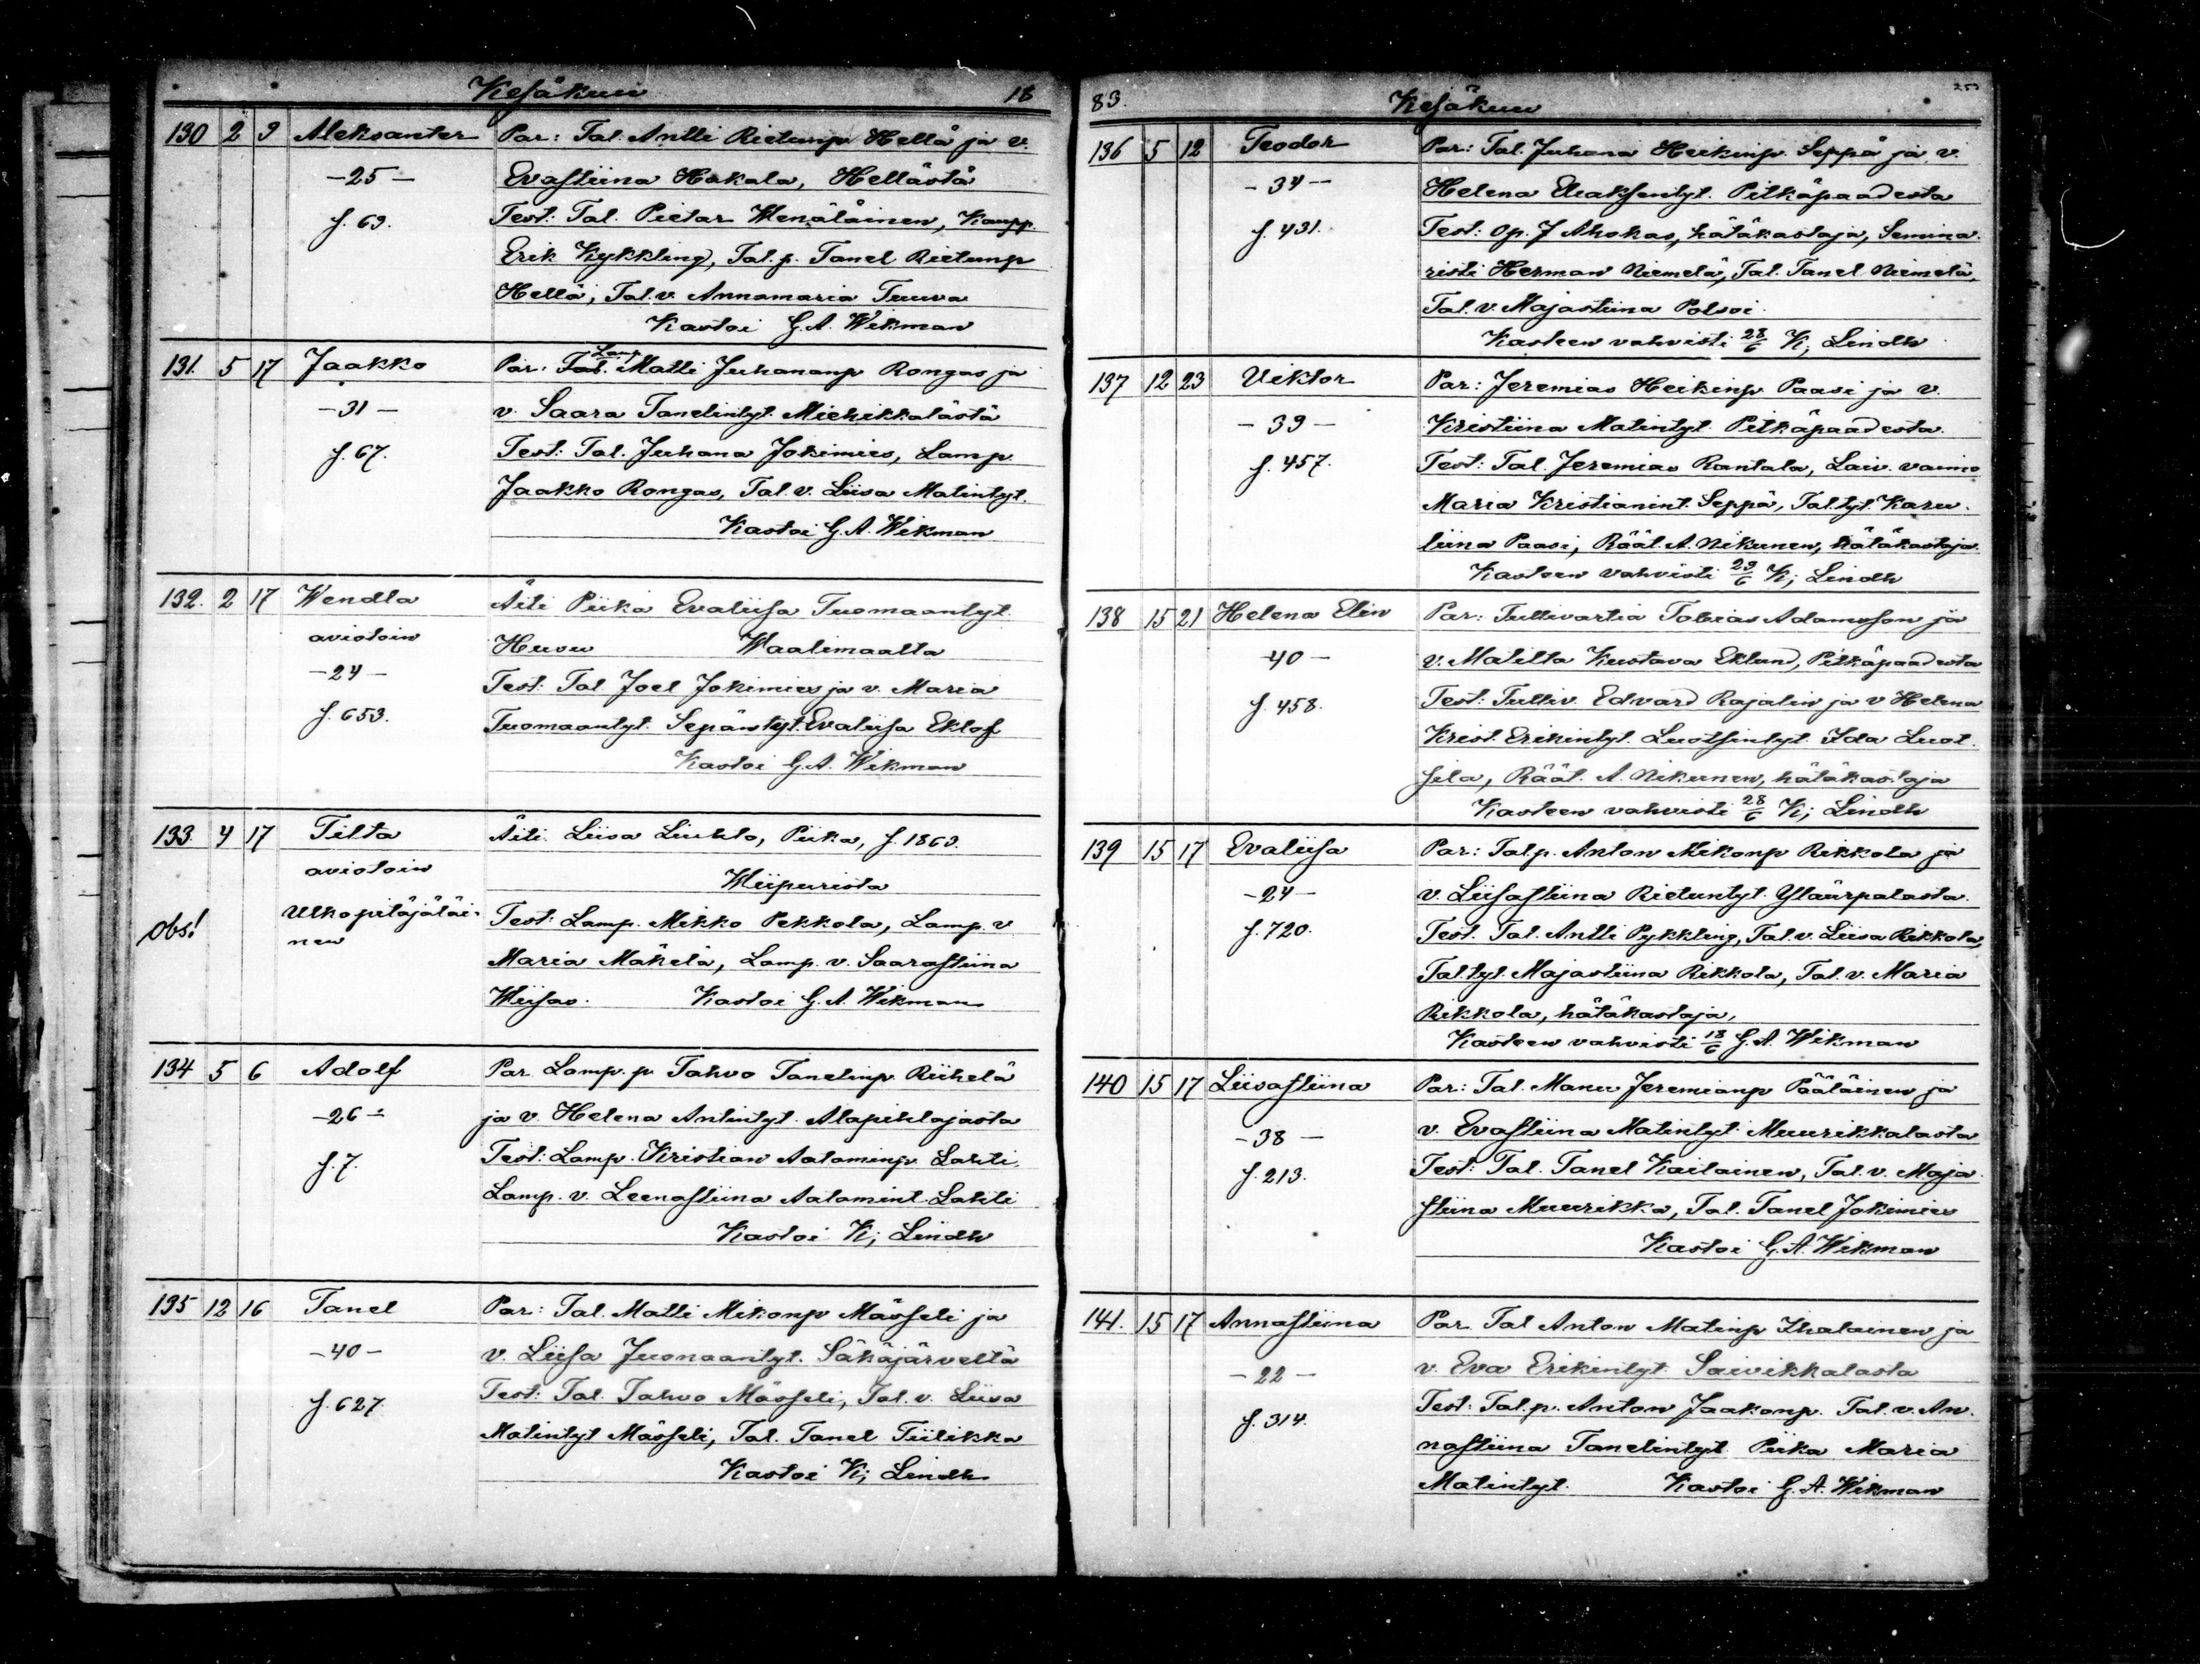 Kesäkuu 18
130 2 9 Aleksanter Par: Tal. Antti Rietunp Hellä ja v.
-25- Evastiina Hakala, Hellästä
f. 69. Test: Tal. Pietar Wenäläinen, Kaupp.
Erik Kykkling, Tal. p. Tanel Rietunp
Hellä, Tal. v. Annamaria Tuuva
Kastoi G. A. Wikman
131. 5 17 Jaakko Par: Tal. Lamp. Matti Juhananp Rongas ja
-31- v. Saara Tanelintyt. Miehikkälästä
f. 67. Test: Tal. Juhana Jokimies, Lamp.
Jaakko Rongas, Tal. v. Liisa Matintyt.
Kastoi G. A. Wikman
132. 2 17 Wendla Äiti Piika Evaliisa Tuomaantyt.
aviotoin Husu Waalimaalta
-24- Test: Tal Joel Jokimies ja v. Maria
f. 653. Tuomaantyt. Sepäntyt. Evaliisa Eklöf
Kastoi G. A. Wikman
133. 4 17 Tilta Äiti. Liisa Liukko, Piika, f. 1863.
aviotoin Wiipurista
Obs! Ulkopitäjäläi-
nen Test: Lamp. Mikko Pekkola, Lamp. v
Maria Mäkelä, Lamp. v. Saarastiina
Wiisas. Kastoi G. A. Wikman
134 5 6 Adolf Par Lamp. p Tahvo Tanelinp. Riihelä
-26- ja v. Helena Antintyt. Alapihlajasta
f. 7. Test: Lamp. Kristian Aataminp. Lahti,
Lamp. v. Leenastiina Aatamint. Lahti
Kastoi K; Lindh
135 12 16 Tanel Par: Tal. Matti Mikonp Mässeli ja
-40- v. Liisa Juonaantyt. Säkäjärveltä
f. 627. Test: Tal. Tahvo Mässeli, Tal. v. Liisa
Matintyt Mässeli, Tal. Tanel Tiilikka
Kastoi K; Lindh
83. Kesäkuu
136 5 12 Teodor Par: Tal. Juhana Heikinp. Seppä ja v.
-34- Helena Eliaksentyt. Pitkäpaadesta
f. 431. Test: Op. J Ahokas, hätäkastaja, Semina-
risti Herman Niemelä, Tal. Tanel Niemelä,
Tal. v. Majastiina Polsoi.
Kasteen vahvisti 28/6 K; Lindh
137 12 23 Viktor Par: Jeremias Heikinp Paasi ja v.
-39- Kristiina Matintyt. Pitkäpaadesta.
f. 457. Test: Tal. Jeremias Rantala, Laiv. vaimo
Maria Kristianint. Seppä, Tal. tyt. Karu-
liina Paasi, Räät. A. Nikunen, hätäkastaja.
Kasteen vahvisti 29/6 K; Lindh
138 15 21 Helena Elin Par: Tullivartia Tobias Adamsson ja
-40- v. Matilta Kustava Eklund, Pitkäpaadesta
f. 458. Test: Tulliv. Edvard Rajalin ja v Helena
Krist. Erikintyt. Luotsintyt. Ida Luot-
sila, Räät. A. Nikunen, hätäkastaja
Kasteen vahvisti 28/6 K; Lindh
139 15 17 Evaliisa Par: Tal. p. Anton Mikonp Rikkola ja
-24- v. Liisastiina Rietuntyt. Yläürpalasta.
f. 720. Test. Tal. Antti Pykkling, Tal. v. Liisa Rikkola,
Tal. tyt. Majastiina Rikkola, Tal. v. Maria
Rikkola, hätäkastaja,
Kasteen vahvisti 18/6 G. A. Wikman
140 15 17 Liisastiina Par: Tal. Manu Jeremianp Pääläinen ja
-38- v. Evastiina Matintyt. Muurikkalasta
f. 213. Test: Tal. Tanel Kailainen, Tal. v. Maja-
stiina Muurikka, Tal. Tanel Jokimies
Kastoi G. A. Wikman
141. 15 17 Annastiina Par Tal Anton Matinp Ihalainen ja
-22- v. Eva Erikintyt. Saivikkalasta
f. 314. Test: Tal. p. Anton Jaakonp. Tal. v. An-
nastiina Tanelintyt. Piika Maria
Matintyt. Kastoi G. A. Wikman